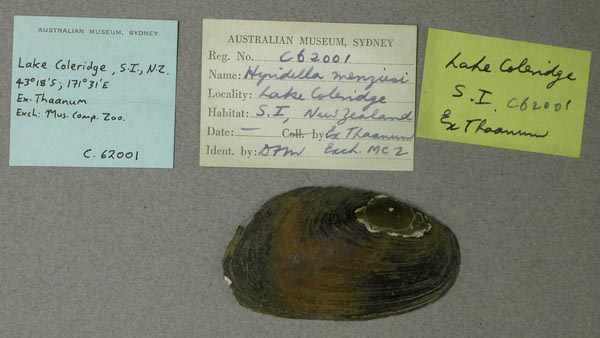 AUSTRALIAN MUSEUM, SYDNEY
Lake Coleridge, S.I., N.Z.
43°18'S; 171°31'E
Ex. Thaanum
Exch: Mus. Comp. Zoo.
C. 62001
AUSTRALIAN MUSEUM, SYDNEY
Reg. No. C62001
Name: Hyridella menziesi
Locality: Lake Coleridge
Habitat: S.I, New Zealand
Date: — Coll. by Ex Thaanum
Ident. by: Exch. MCZ
Lake Coleridge
S.I. C62001
Ex Thaanum